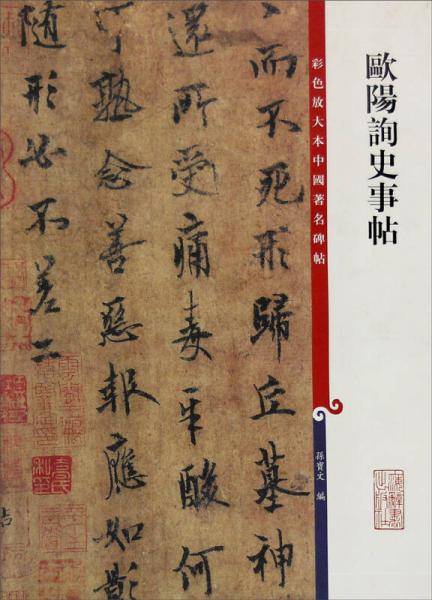 歐陽詢史事帖
彩色放大本中國著名碑帖
孫寶文 編
而不死形歸丘墓神
還所受痛毒辛酸何
可熟念善惡報應如影
隨形必不差二